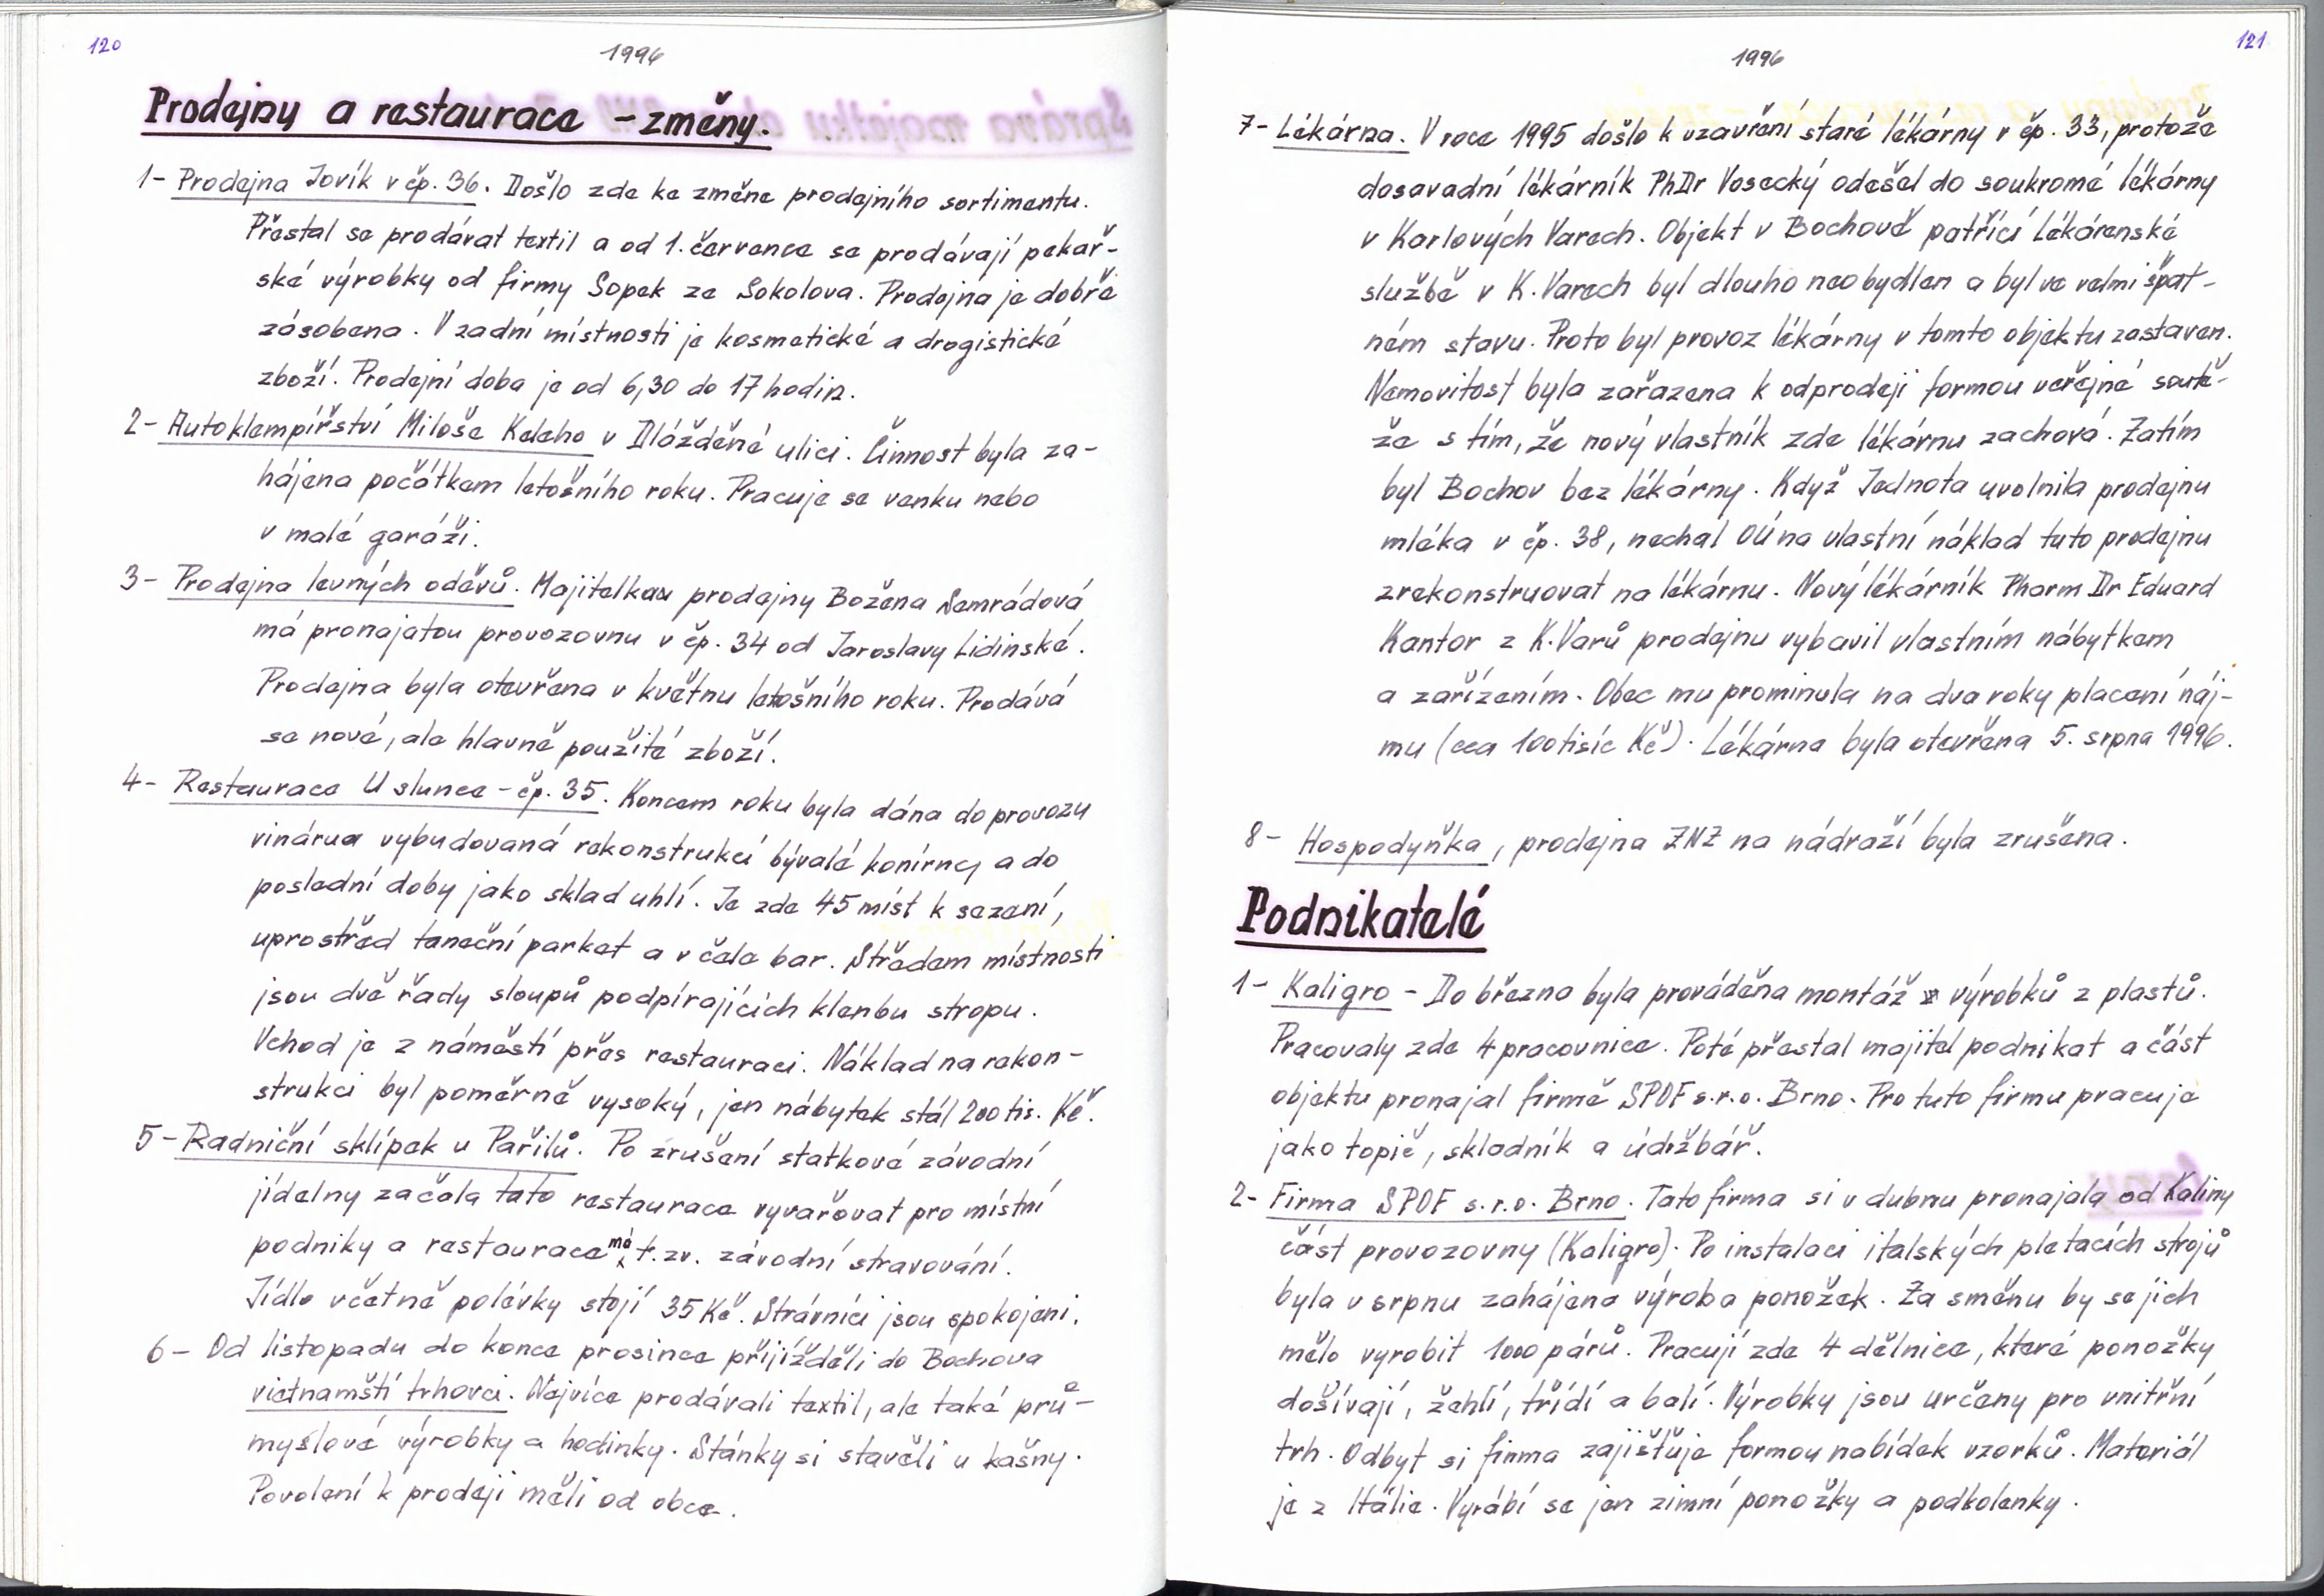 120
1996
Prodejny a restaurace - změny.
1- Prodejna Jovík v čp. 36. Došlo zde ke změne prodejního sortimentu.
Přestal se prodávat textil a od 1. července se prodávají pekař-
ské výrobky od firmy Sopek ze Sokolova. Prodejna je dobře
zásobena. V zadní místnosti je kosmetické a drogistické
zboží. Prodejní doba je od 6,30 do 17 hodin.
2- Autoklempířství Miloše Keleho v Dlážděné ulici. Činnost byla za-
hájena počátkem letošního roku. Pracuje se venku nebo
v malé garáži.
3- Prodejna levných oděvů. Majitelka prodejny Božena Semrádová
má pronajatou provozovnu v čp. 34 od Jaroslavy Lidinské.
Prodejna byla otevřena v květnu letošního roku. Prodává
se nové, ale hlavně použité zboží.
4- Restaurace U slunce - čp. 35. Koncem roku byla dána do provozu
vinárna vybudovaná rekonstrukcí bývalé konírny a do
poslední doby jako sklad uhlí. Je zde 45 míst k sezení,
uprostřed taneční parket a v čele bar. Středem místnosti
jsou dvě řady sloupů podpírajících klenbu stropu.
Vchod je z náměstí přes restauraci. Náklad na rekon-
strukci byl poměrně vysoký, jen nábytek stál 200 tis. Kč.
5- Radniční sklípek u Pařilů. Po zrušení statkové závodní
jídelny začala tato restaurace vyvařovat pro místní
podniky a restaurace má t. zv. závodní stravování.
Jídlo včetně polévky stojí 35 Kč. Strávníci jsou spokojeni.
6- Od listopadu do konce prosince přijížděli do Bochova
vietnamští trhovci. Nejvíce prodávali textil, ale také prů-
myslové výrobky a hodinky. Stánky si stavěli u kašny.
Povolení k prodeji měli od obce.
121
1996
7- Lékárna. V roce 1995 došlo k uzavření staré lékárny v čp. 33, protože
dosavadní lékárník PhDr Vosecký odešel do soukromé lékárny
v Karlových Varech. Objekt v Bochově patřící Lékárenské
službě v K. Varech byl dlouho neobydlen a byl ve velmi špat-
ném stavu. Proto byl provoz lékárny v tomto objektu zastaven.
Nemovitost byla zařazena k odprodeji formou veřejné soutě-
že s tím, že nový vlastník zde lékárnu zachová. Zatím
byl Bochov bez lékárny. Když Jednota uvolnila prodejnu
mléka v čp. 38, nechal OÚ na vlastní náklad tuto prodejnu
zrekonstruovat na lékárnu. Nový lékárník Pharm Dr Eduard
Kantor z K. Varů prodejnu vybavil vlastním nábytkem
a zařízením. Obec mu prominula na dva roky placení náj-
mu (cca 100 tisíc Kč). Lékárna byla otevřena 5. srpna 1996.
8- Hospodyňka, prodejna ZNZ na nádraží byla zrušena.
Podnikatelé
1- Kaligro - Do března byla prováděna montáž výrobků z plastů.
Pracovaly zde 4 pracovnice. Poté přestal majitel podnikat a část
objektu pronajal firmě SPOF s.r.o. Brno. Pro tuto firmu pracuje
jako topič, skladník a údržbář.
2- Firma SPOF s.r.o. Brno. Tato firma si v dubnu pronajala od Kaliny
část provozovny (Kaligro). Po instalaci italských pletacích strojů
byla v srpnu zahájena výroba ponožek. Za směnu by se jich
mělo vyrobit 1000 párů. Pracují zde 4 dělnice, které ponožky
došívají, žehlí, třídí a balí. Výrobky jsou určeny pro vnitřní
trh. Odbyt si firma zajišťuje formou nabídek vzorků. Materiál
je z Itálie. Vyrábí se jen zimní ponožky a podkolenky.